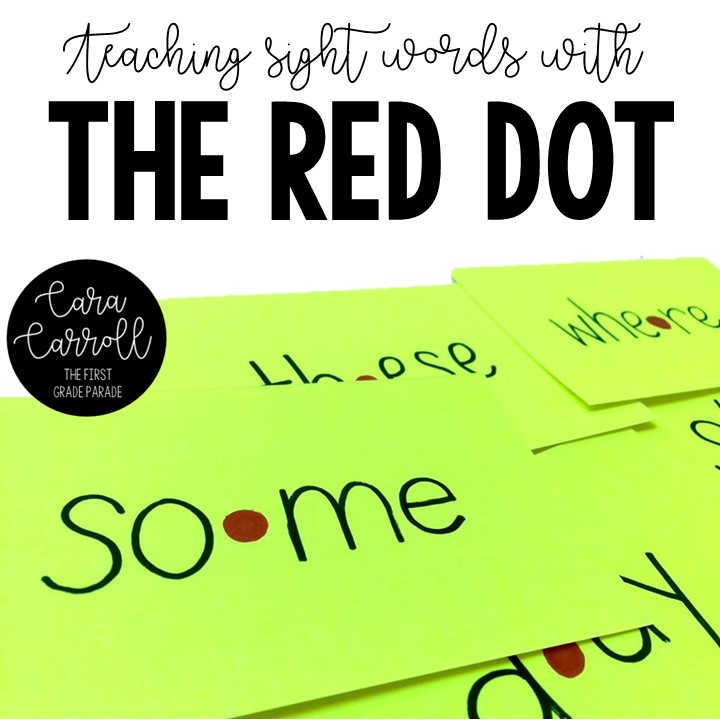 teaching sight words with
THE RED DOT
Cara
Carroll
THE FIRST
GRADE PARADE
th•ese
whe•re
so•me
d•ay